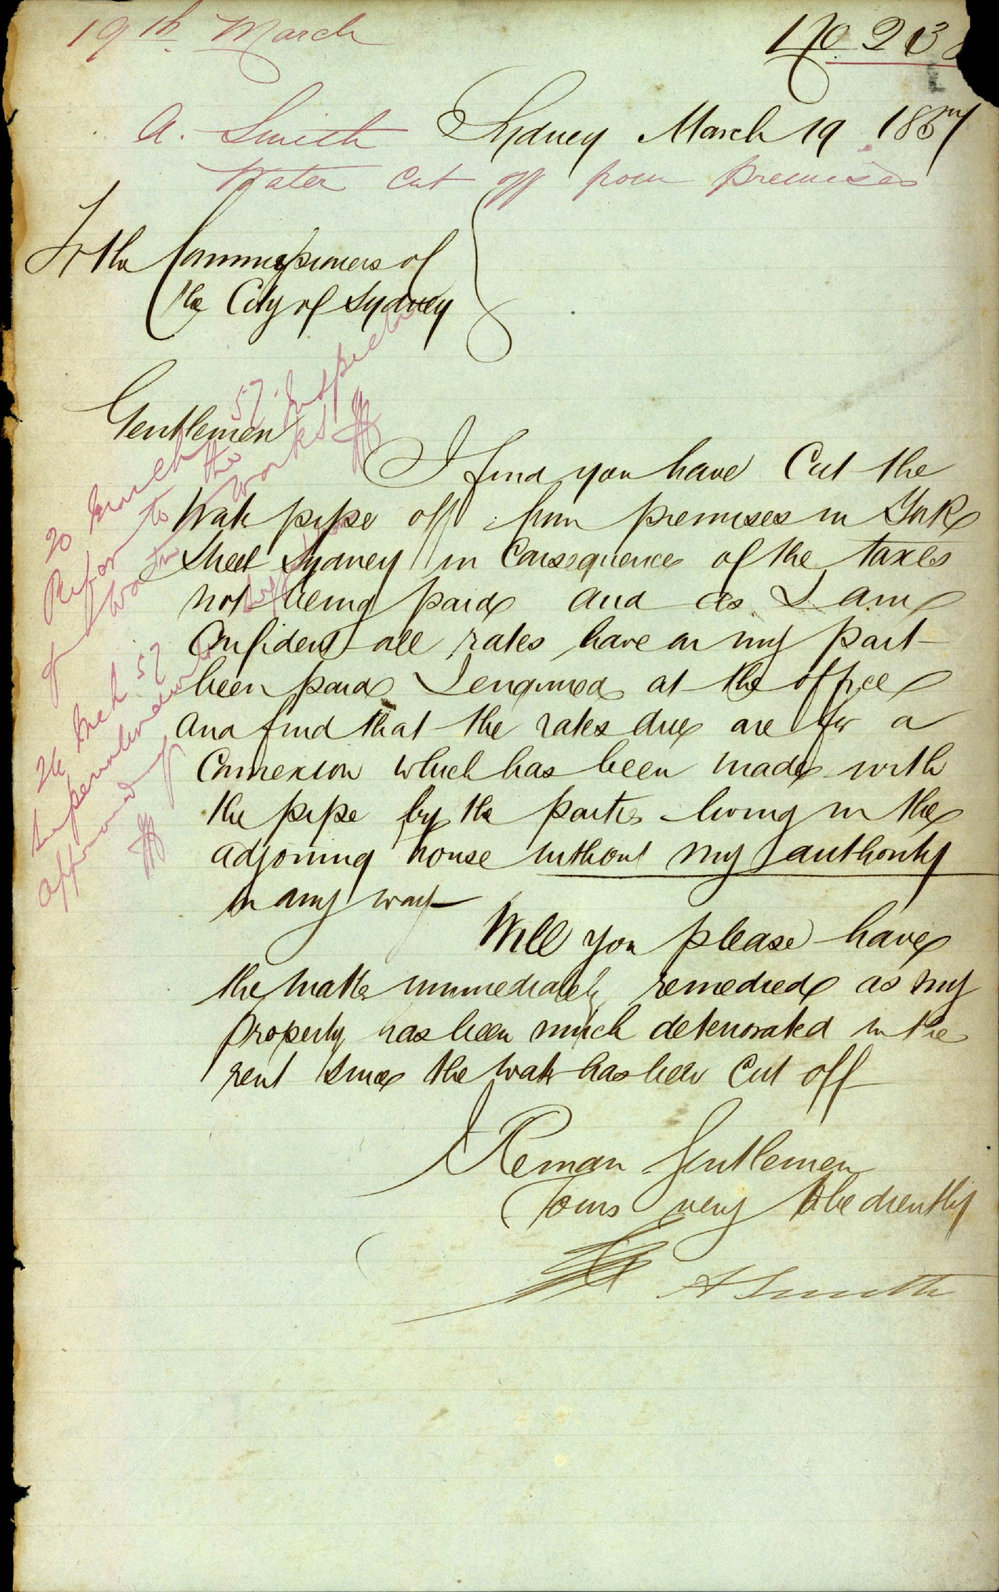 19th March
No 238
A. Smith
Sydney March 19 1857
Water cut off from premises
To the Commissioners of
the City of Sydney
Gentlemen
I find you have Cut the
Water pipe off from premises in York
Street Sydney in Consequence of the taxes
not being paid and as I am
Confident all rates have on my part
been paid I enquired at the office
and find that the rates due are for a
Connexion which has been made with
the pipe by the parties living in the
adjoining house without my authority
in any way
Will you please have
the matter immediately remedied as my
property has been much deteriorated in the
rent since the water has been Cut off
I Remain Gentlemen
Yours very Obediently
A Smith
20 March 57. Inspector
Refer to the
of Water Works
26 Mch 57
approved of